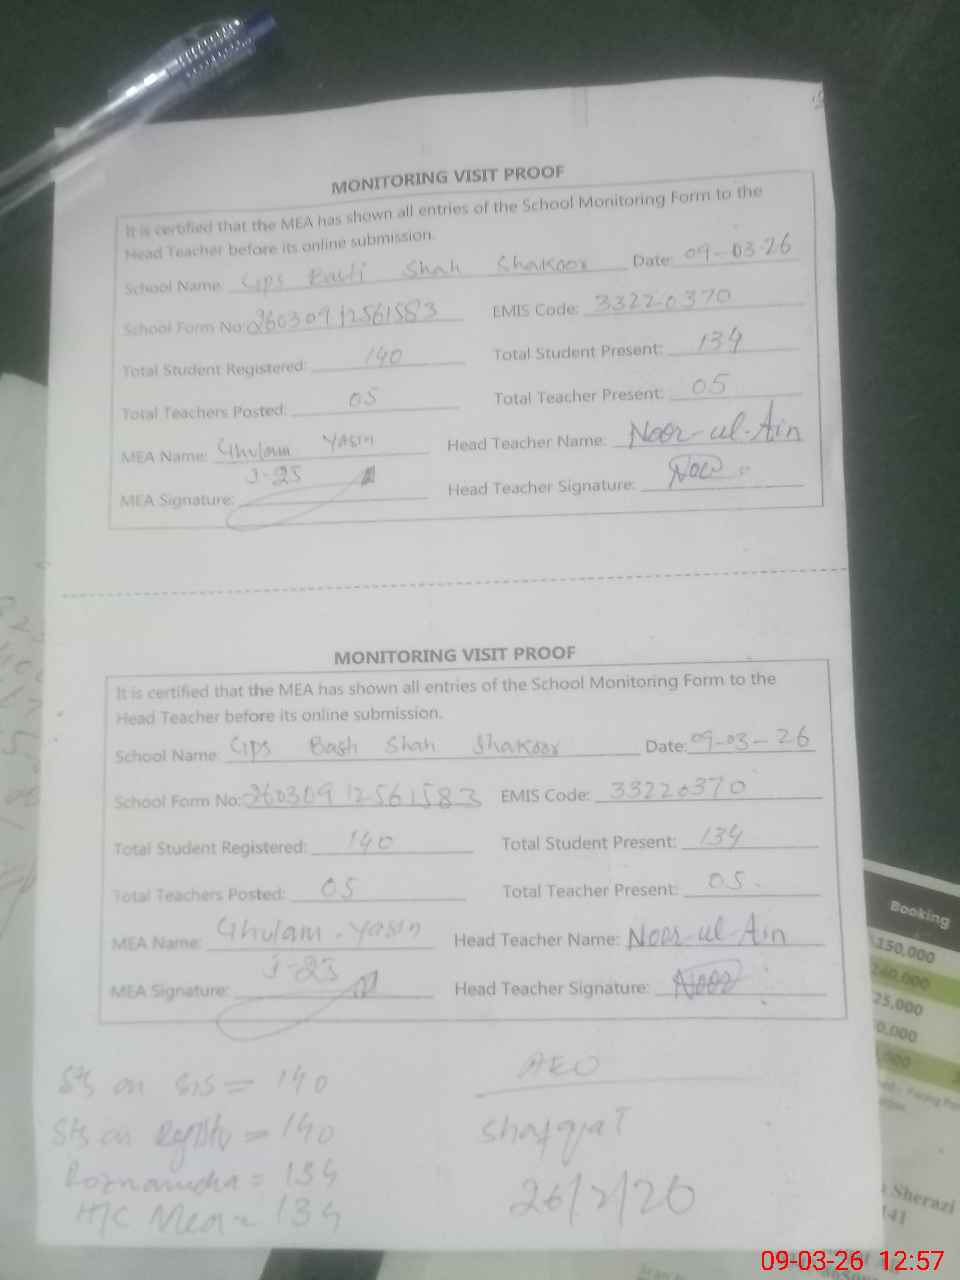 MONITORING VISIT PROOF
It is certified that the MEA has shown all entries of the School Monitoring Form to the
Head Teacher before its online submission.
School Name: Gps Basti Shah Shakoor Date: 09-03-26
School Form No: 26030912561583 EMIS Code: 33220370
Total Student Registered: 140 Total Student Present: 134
Total Teachers Posted: 05 Total Teacher Present: 05
MEA Name: Ghulam Yasin Head Teacher Name: Noor-ul-Ain
J-23
MEA Signature: Head Teacher Signature: Noor
MONITORING VISIT PROOF
It is certified that the MEA has shown all entries of the School Monitoring Form to the
Head Teacher before its online submission.
School Name: Gps Basti Shah Shakoor Date: 09-03-26
School Form No: 260309 12561583 EMIS Code: 33220370
Total Student Registered: 140 Total Student Present: 134
Total Teachers Posted: 05 Total Teacher Present: 05
MEA Name: Ghulam Yasin Head Teacher Name: Noor-ul-Ain
J-23
MEA Signature: Head Teacher Signature: Noor
Sts on SIS = 140
Sts on Register = 140
Roznamcha = 134
H/C Mea = 134
AEO
Shafqat
26/2/26
Booking
150,000
240,000
25,000
0,000
Sherazi
141
09-03-26 12:57